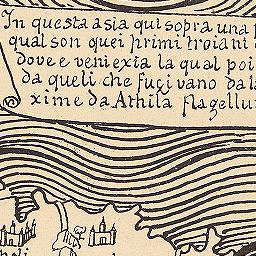 In questa asia qui sopra una
qual son quei primi troiani
dove e veniexia la qual poi
da queli che fugivano da la
xime da Athila flagellu